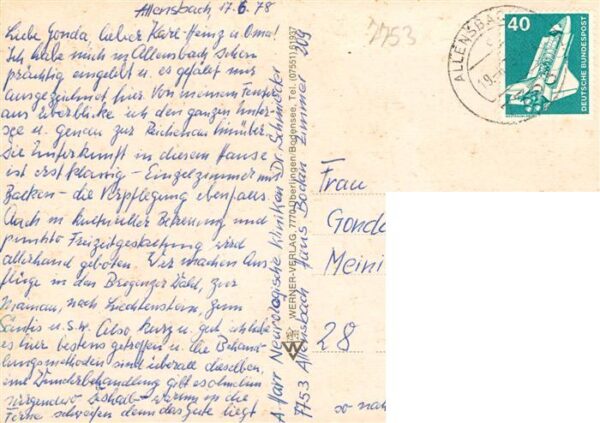 Allensbach 17.6.78
Liebe Gonda, lieber Karl-Heinz u. Oma!
Ich habe mich in Allensbach schon
prächtig eingelebt u. es gefällt mir
ausgezeichnet hier. Von meinem Fenster
aus überblicke ich den ganzen Unter-
see u. genau zur Reichenau hinüber.
Die Unterkunft in diesem Hause
ist erstklassig - Einzelzimmer mit
Balkon - die Verpflegung ebenfalls.
Auch in kultureller Betreuung und
punkto Freizeitgestaltung wird
allerhand geboten. Wir machen Aus-
flüge in den Bregenzer Wald, zur
Mainau, nach Liechtenstein, zum
Säntis u.s.w. Also kurz u. gut, ich habe
es hier bestens getroffen u. die Behand-
lungsmethoden sind überall dieselben,
eine Wunderbehandlung gibt es ohnehin
nirgendwo. Deshalb - warum in die
Ferne schweifen denn das Gute liegt
so nah
A. Harr Neurologische Kliniken Dr. Schmieder
7753 Allensbach Haus Bodan Zimmer 209
WERNER-VERLAG 7770 Überlingen/Bodensee, Tel. (07551) 61937
7753
ALLENSBAC
40
DEUTSCHE BUNDESPOST
Frau
Gonda
Meini
28